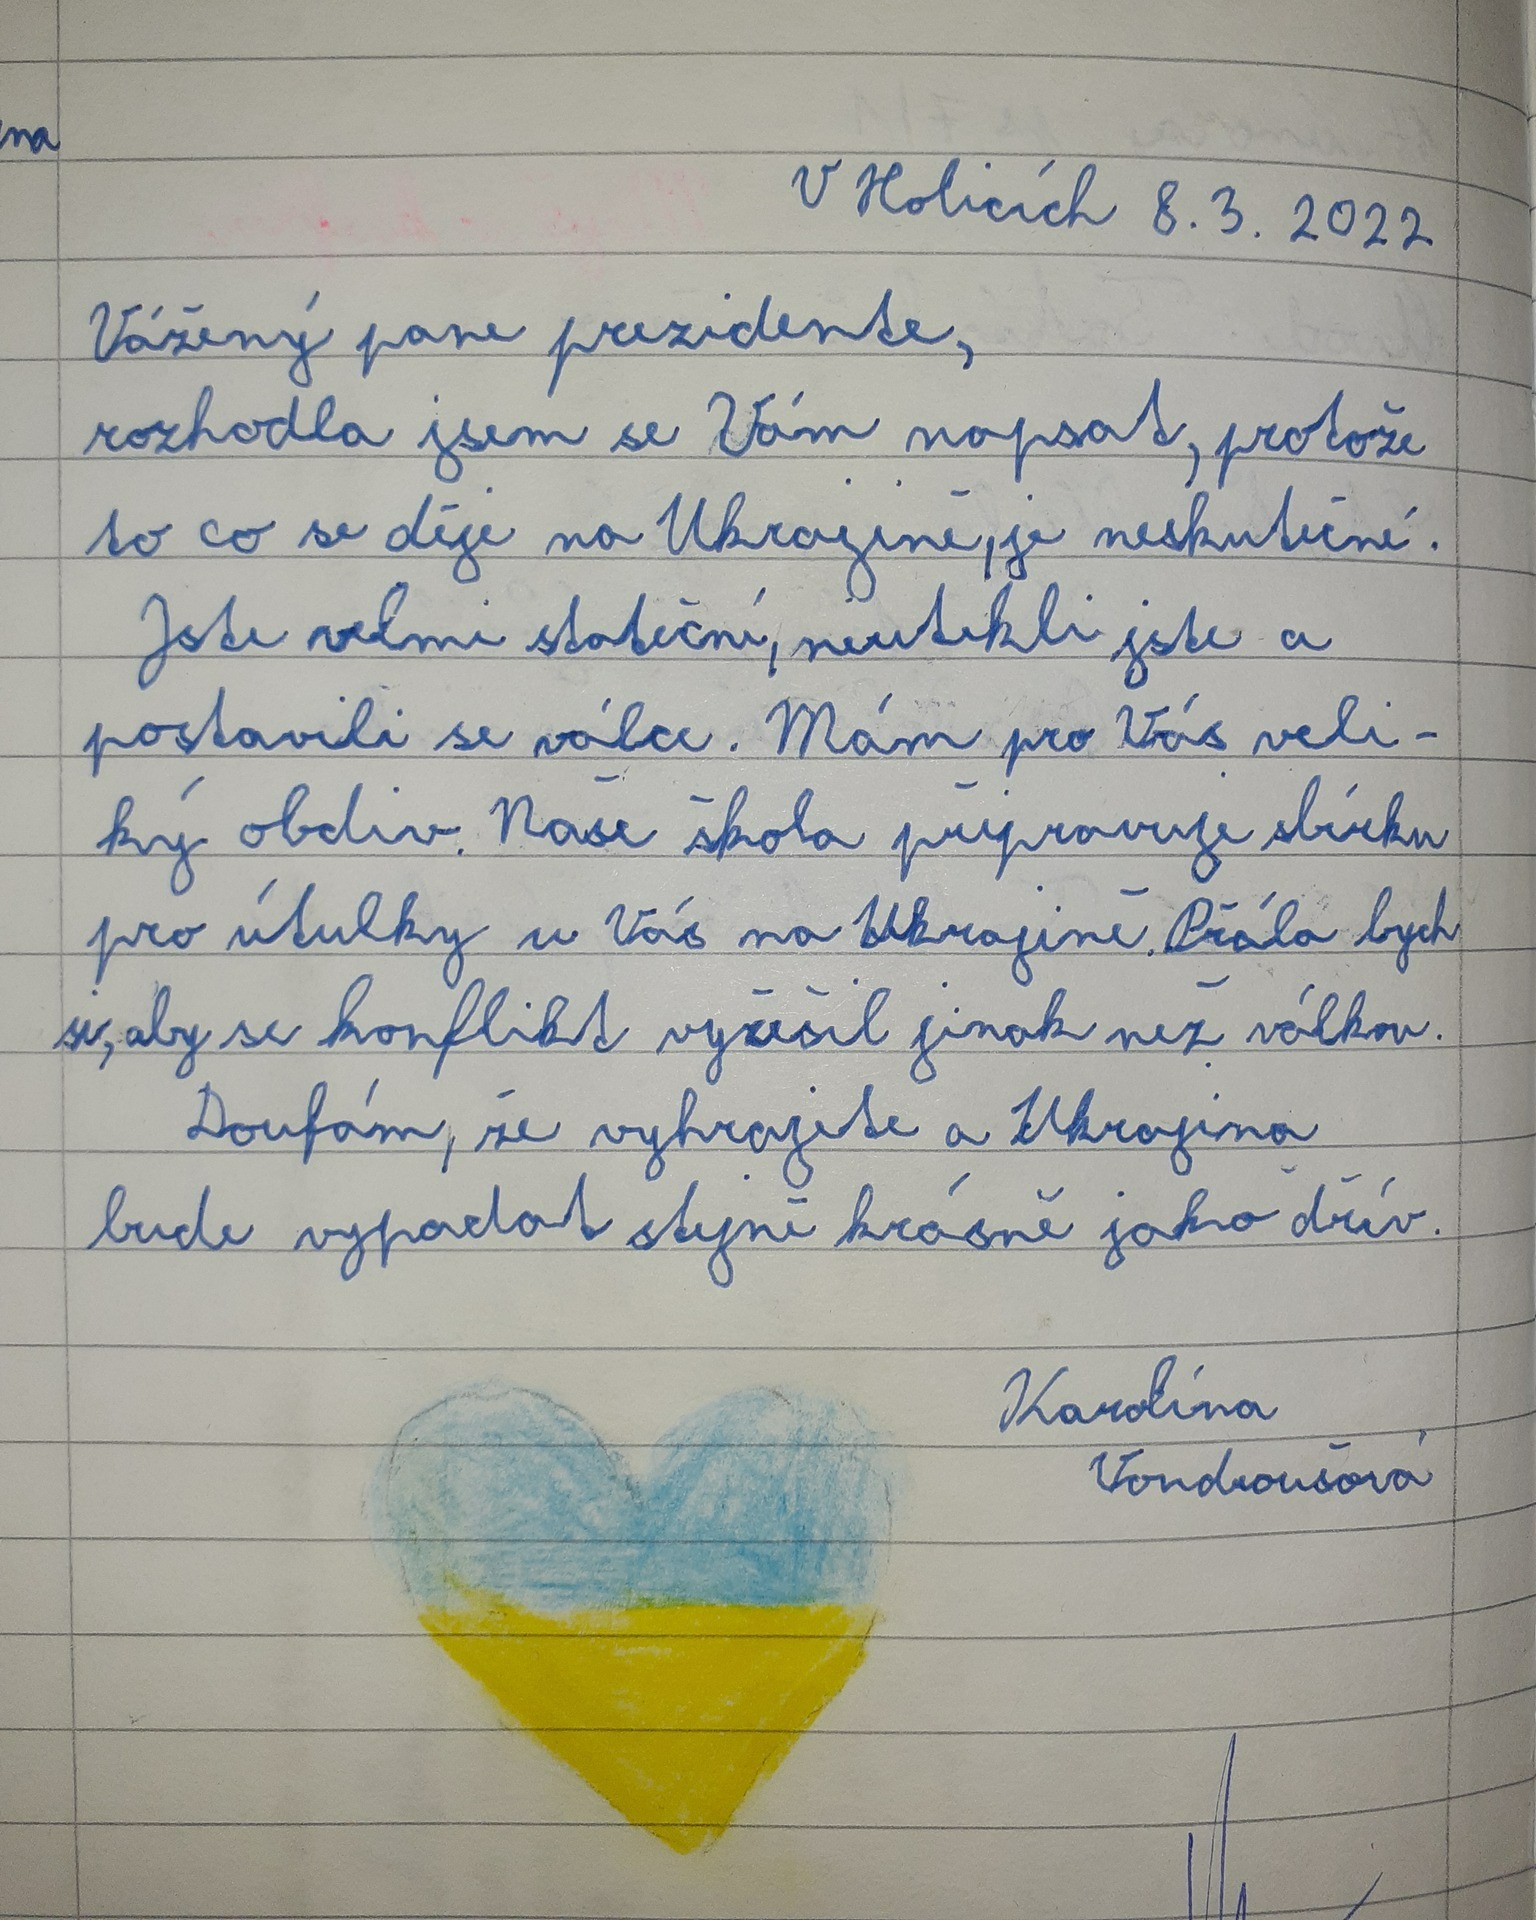 na
V Holicích 8.3. 2022
Vážený pane prezidente,
rozhodla jsem se Vám napsat, protože
to co se děje na Ukrajině, je neskutečné.
Jste velmi stateční, neutekli jste a
postavili se válce. Mám pro Vás veli-
ký obdiv. Naše škola připravuje sbírku
pro útulky u Vás na Ukrajině. Přála bych
si, aby se konflikt vyřešil jinak než válkou.
Doufám, že vyhrajete a Ukrajina
bude vypadat stejně krásně jako dřív.
Karolína
Vondroušová